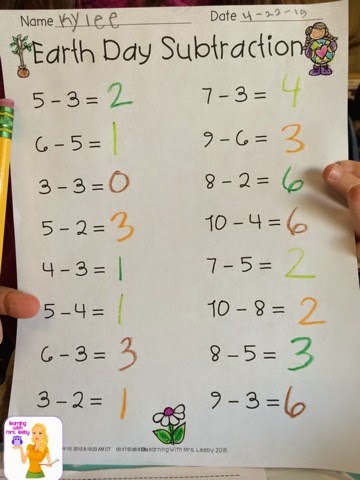 Name Kylee Date 4-22-19
Earth Day Subtraction
5 - 3 = 2
6 - 5 = 1
3 - 3 = 0
5 - 2 = 3
4 - 3 = 1
5 - 4 = 1
6 - 3 = 3
3 - 2 = 1
7 - 3 = 4
9 - 6 = 3
8 - 2 = 6
10 - 4 = 6
7 - 5 = 2
10 - 8 = 2
8 - 5 = 3
9 - 3 = 6
Learning With Mrs. Leeby 2015
learning
with
mrs. leeby